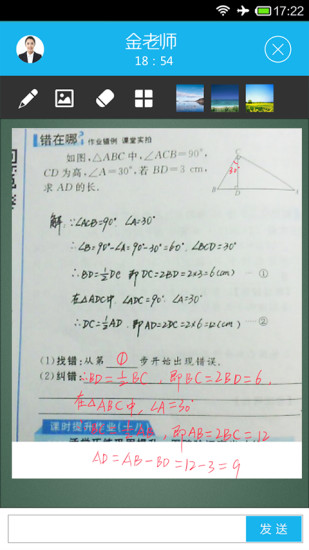 17:22
金老师
18：54
错在哪？ 作业错例 课堂实拍
如图，△ABC 中，∠ACB＝90°，
CD 为高，∠A＝30°，若 BD＝3 cm，
求 AD 的长．
C
B
D
解：∵∠ACB=90° ∠A=30°
∴∠B=90°-∠A=90°-30°=60°，∠BCD=30°
∴BD=½DC 即DC=2BD=2×3=6(cm) ——①
在△ADC中，∠ADC=90°，∠A=30°
∴DC=½AD，即AD=2DC=2×6=12(cm) ——②
(1)找错：从第 ① 步开始出现错误．
(2)纠错：∴BD=½BC，即BC=2BD=6，
在△ABC中，∠A=30°
课时提升作业(十八)
，即AB=2BC=12
AD=AB-BD=12-3=9
发 送